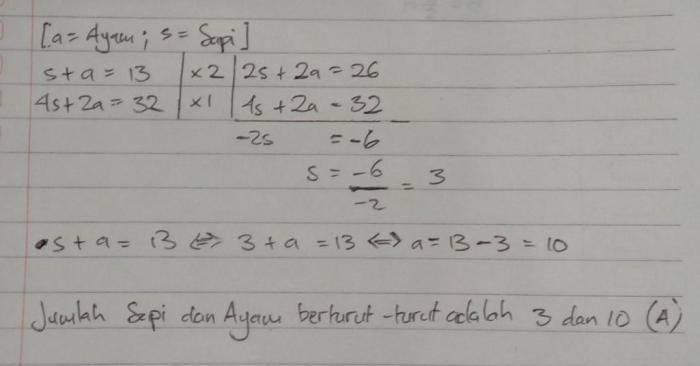 [a = Ayam ; s = Sapi]
s + a = 13 | x2 | 2s + 2a = 26
4s + 2a = 32 | x1 | 4s + 2a = 32 -
-2s = -6
s = -6/-2 = 3
• s + a = 13 ⇔ 3 + a = 13 ⇔ a = 13 - 3 = 10
Jumlah Sapi dan Ayam berturut-turut adalah 3 dan 10 (A)